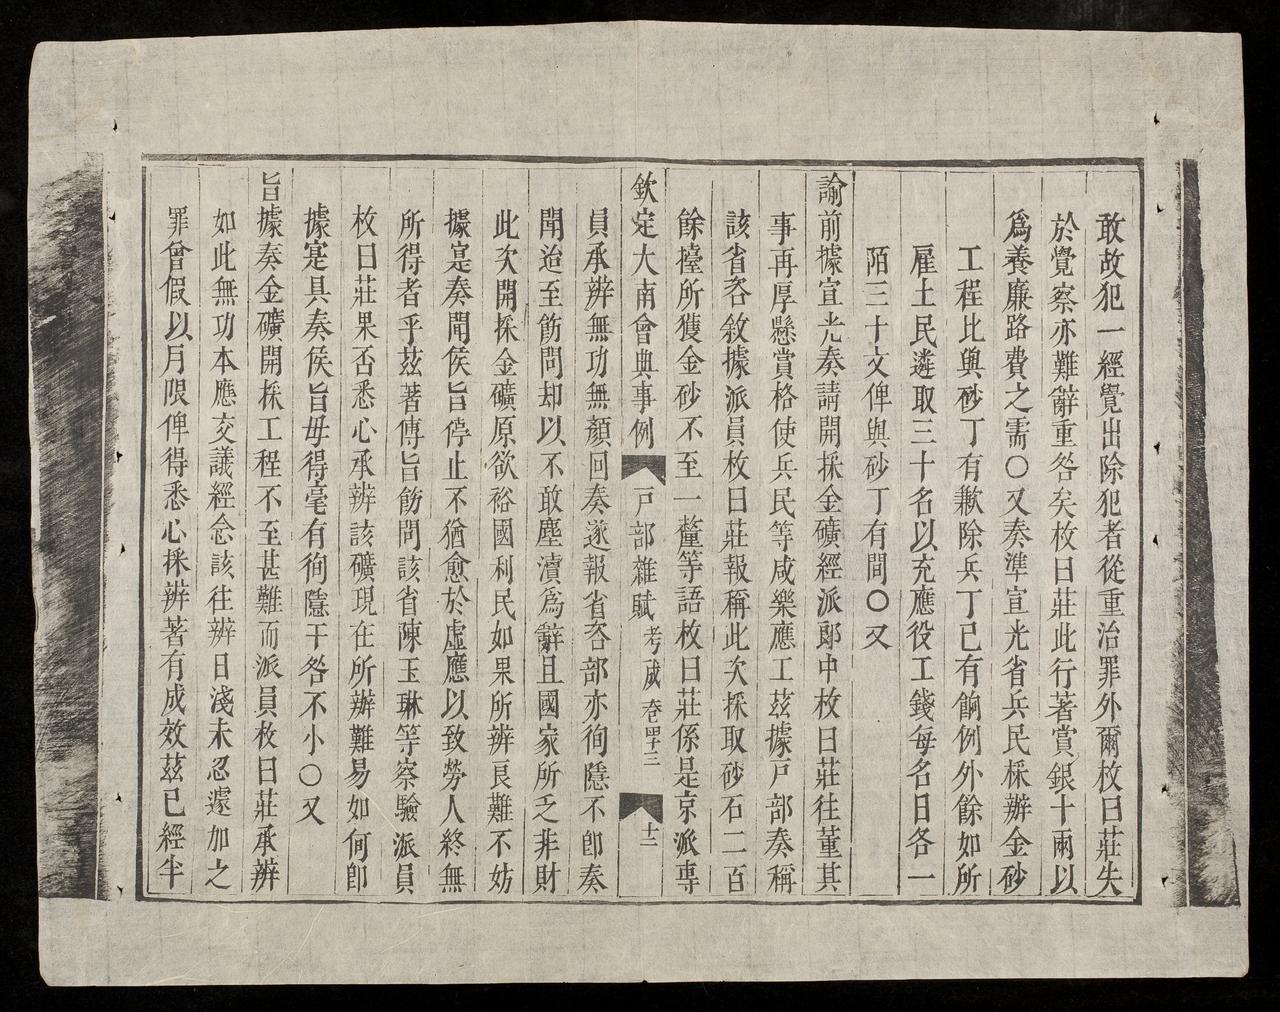 敢故犯一經覺出除犯者從重治罪外爾枚曰莊失
於覺察亦難辭重咎矣枚曰莊此行著賞銀十兩以
爲養廉路費之需〇又奏準宣光省兵民採辦金砂
工程比與砂丁有歉除兵丁已有餉例外餘如所
雇土民遴取三十名以充應役工錢每名日各一
陌三十文俾與砂丁有間〇又
諭前據宣光奏請開採金礦經派郎中枚曰莊往董其
事再厚懸賞格使兵民等咸樂應工茲據戶部奏稱
該省咨敘據派員枚曰莊報稱此次採取砂石二百
餘擡所獲金砂不至一釐等語枚曰莊係是京派專
欽定大南會典事例 戶部雜賦 考成 卷四十三 十二
員承辨無功無顏回奏遂報省咨部亦徇隱不卽奏
聞迨至飭問却以不敢塵瀆爲辭且國家所乏非財
此次開採金礦原欲裕國利民如果所辨艮難不妨
據寔奏聞侯旨停止不猶愈於虛應以致勞人終無
所得者乎茲著傳旨飭問該省陳玉琳等察驗派員
枚曰莊果否悉心承辨該礦現在所辦難易如何卽
據寔具奏侯旨毋得毫有徇隱干咎不小〇又
旨據奏金礦開採工程不至甚難而派員枚曰莊承辨
如此無功本應交議經念該往辨日淺未忍遽加之
罪曾假以月限俾得悉心採辨著有成效茲已經半